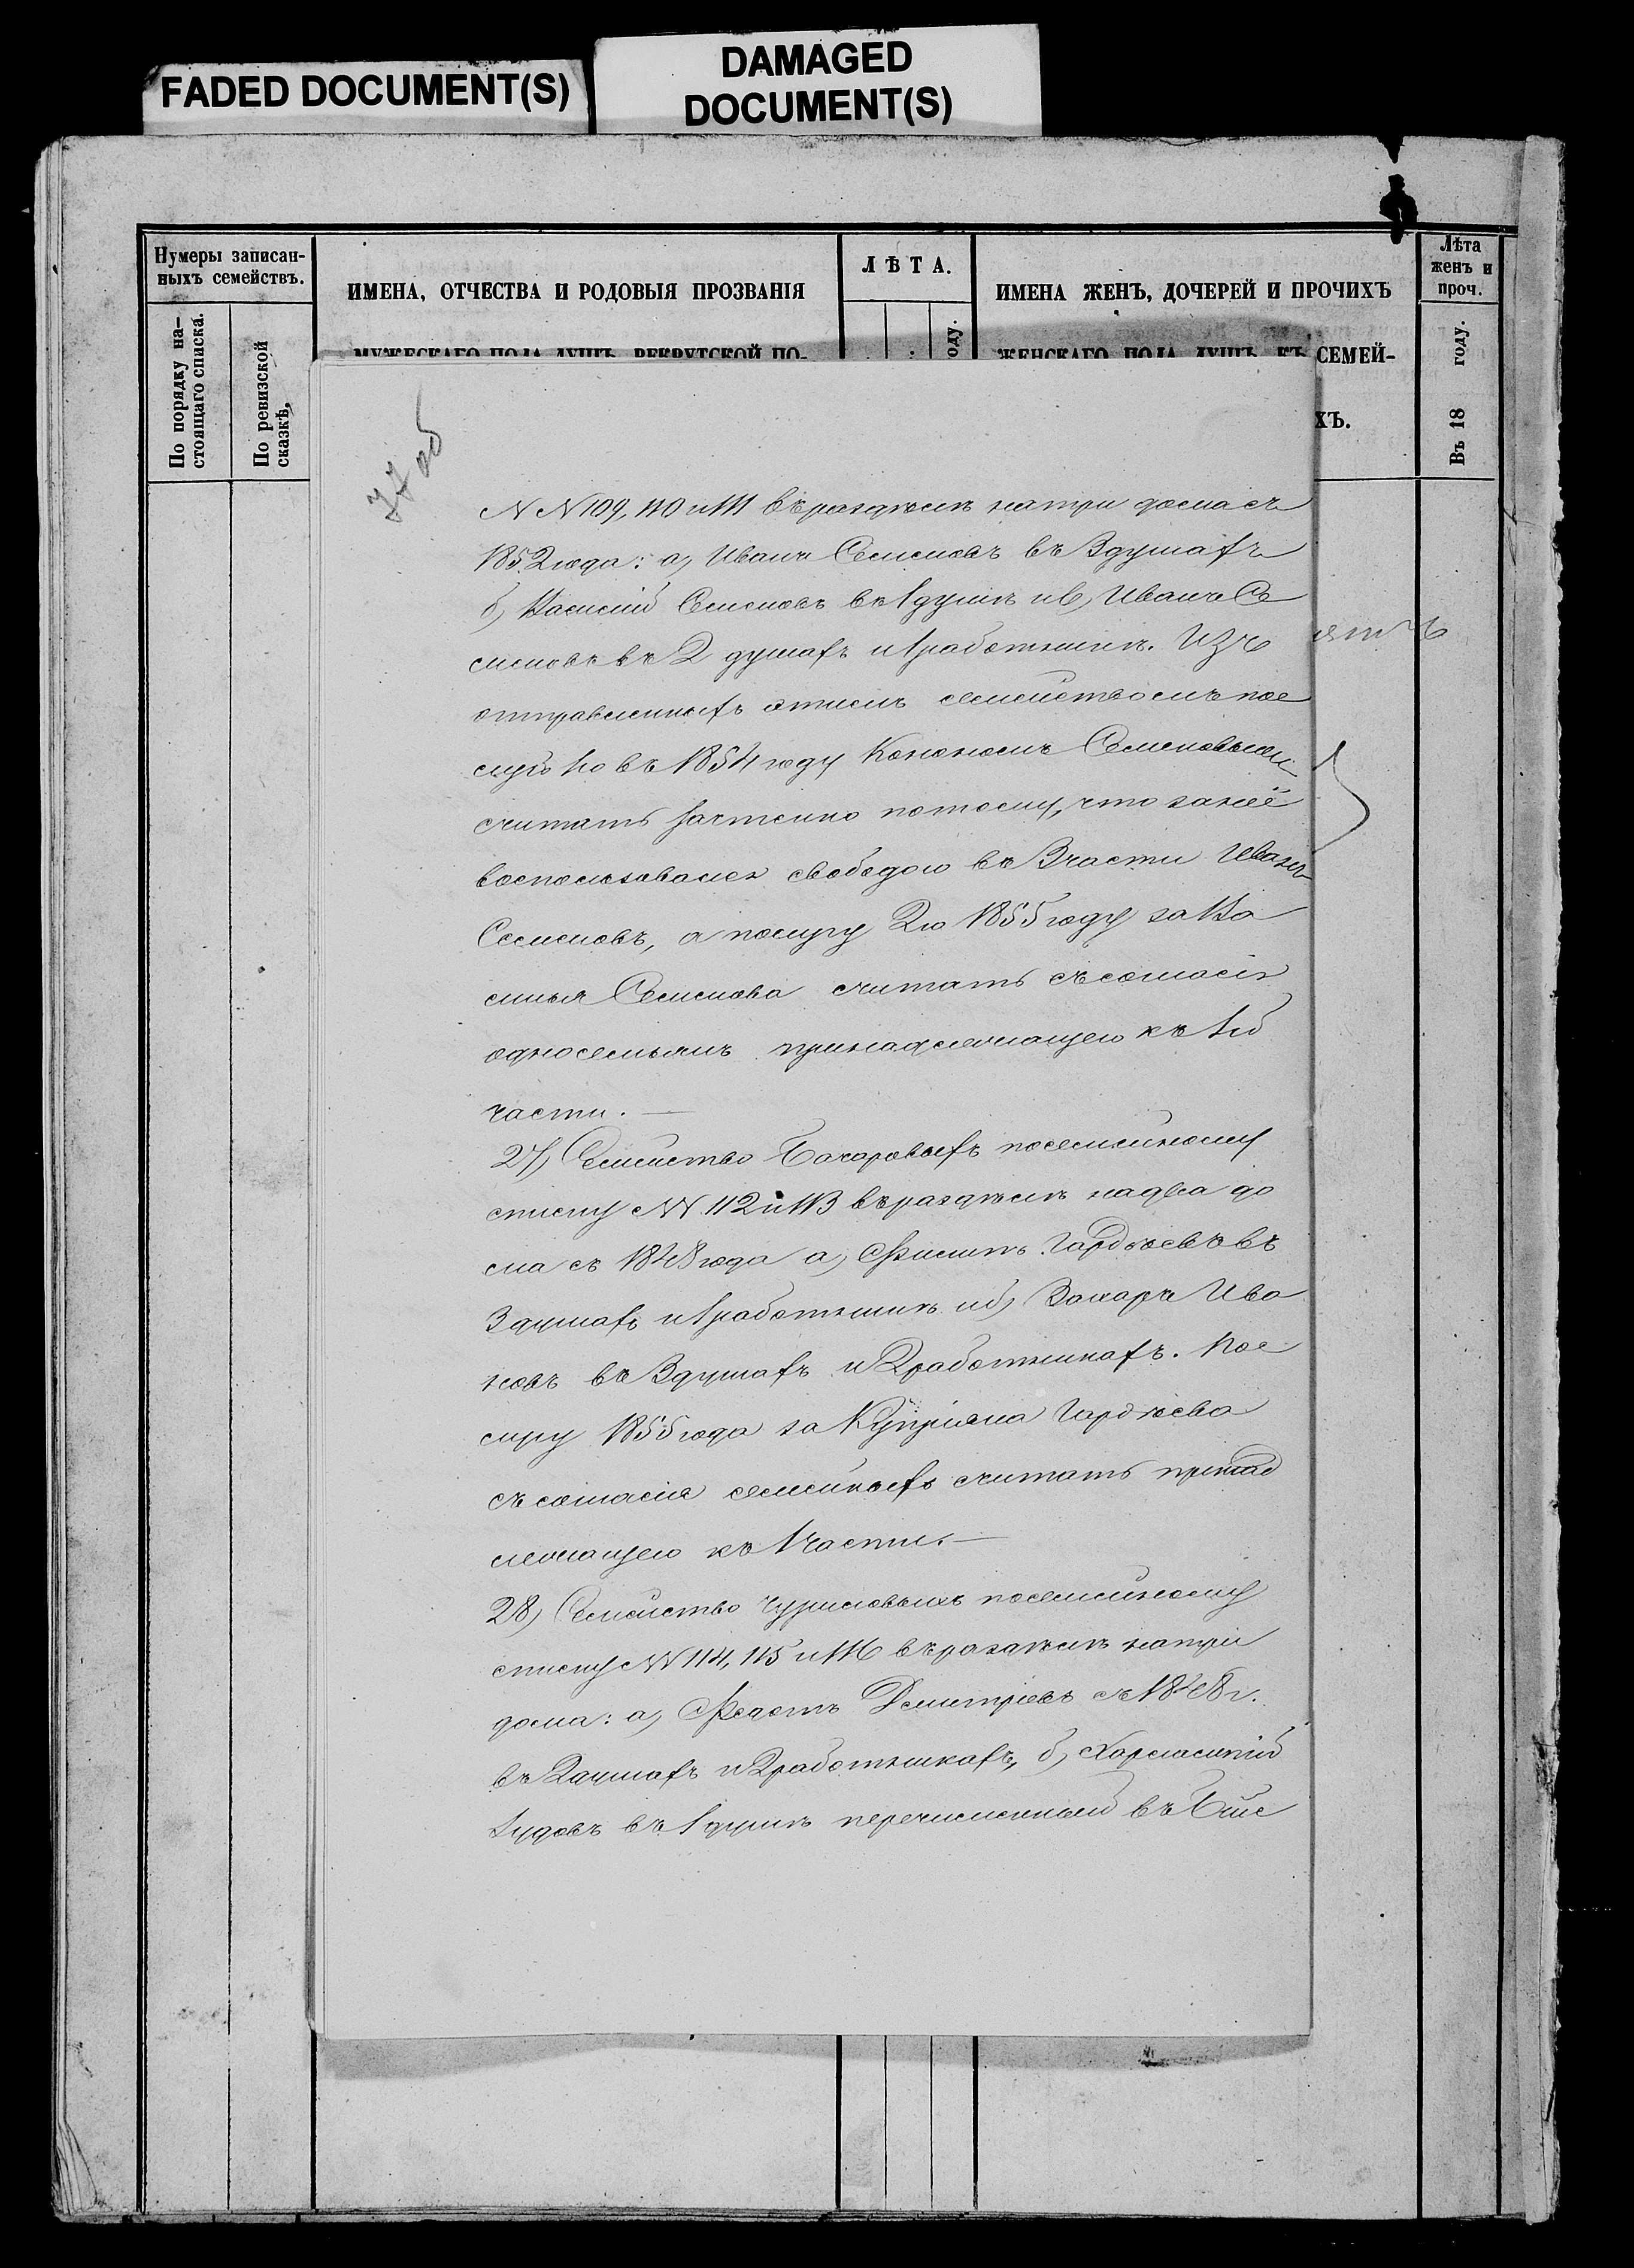 FADED DOCUMENT(S)
DAMAGED
DOCUMENT(S)
Нумеры записан-
ныхъ семействъ.
По порядку на-
стоящаго списка.
По ревизской
сказкѣ,
ИМЕНА, ОТЧЕСТВА И РОДОВЫЯ ПРОЗВАНІЯ
МУЖЕСКАГО ПОЛА ДУШЪ, РЕКРУТСКОЙ ПО-
ЛѢТА.
оду.
ИМЕНА ЖЕНЪ, ДОЧЕРЕЙ И ПРОЧИХЪ
ЖЕНСКАГО ПОЛА ДУШЪ, КЪ СЕМЕЙ-
ХЪ.
Лѣта
женъ и
проч.
Въ 18 году.
37 об
NN 109, 110 и 111 въ раздѣлѣ на три дома съ
1852 года: а) Иванъ Семеновъ въ 3 душахъ
б) Василій Семеновъ въ 1 душѣ и в) Иванъ Се
меновъ въ 2 душахъ и 1 работникѣ. Изъ
отправленныхъ этимъ семействомъ пос
луг 1ю въ 1854 году Конономъ Семеновымъ
считать зачтено потому, что за неё
воспользовался свободою въ 3 части Иванъ
Семеновъ, а послугу 2ю 1855 году за Ва
силья Семенова считать съ согласія
односемьянъ принадлежащею къ 1й
части. —
27) Семейство Бочаровыхъ по семейному
списку NN 112 и 113 въ раздѣлѣ на два до
ма съ 1848 года а) Филипъ Гардѣевъ въ
3 душахъ и 1 работникѣ и б) Захаръ Ива
новъ въ 3 душахъ и 2 работникахъ. Пос
лугу 1855 года за Купріяна Гардѣева
съ согласія семейныхъ считать принад
лежащею къ 1 части. —
28) Семейство Чуриловыхъ по семейному
списку NN 114, 115 и 116 въ раздѣлѣ на три
дома: а) Дмитріевъ съ 1848 г.
въ 2 душахъ и 2 работникахъ, б) Харлампій
въ 1 душѣ перечисленный въ Бійс